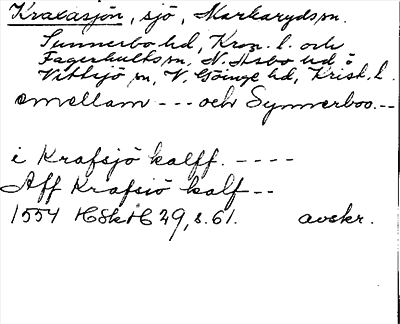 Kraxasjön, sjö, Markarydssn.
Sunnerbo hd, Kron. l. och
Fagerhultssn, N. Åsbo hd o
Vittsjö sn, V. Göinge hd, Krist. l.
emellam --- och Synnerboo.--
i Krafsjö kalff. ----
Aff Krafsiö kalf--
1554 HSkH 29, s. 61. avskr.